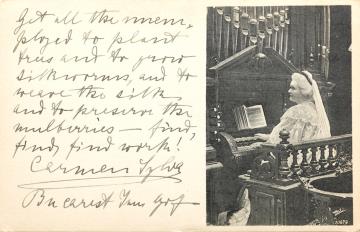 Get all the unem,
ployed to plant
trees and to grow
silkworms, and to
weave the silk
and to preserve the
mulberries — find,
find, find work!
Carmen Sylva
Bucarest